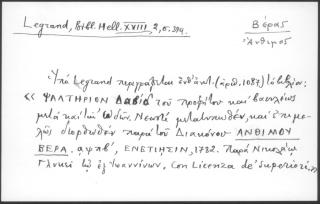 Legrand, Bibl. Hell. XVIII 2, σ. 394.
Βέρας
Ἄνθιμος
Ὑπό Legrand περιγράφεται ἐνθ' ἀντ. (ἀριθ. 1087) τό βιβλίον:
«ΨΑΛΤΗΡΙΟΝ Δαβίδ τοῦ προφήτου καί βασιλέως
μετά καί τῶν ᾠδῶν. Νεωστί μετατυπωθέν, καί ἐπιμε-
λῶς διορθωθέν παρά τοῦ Διακόνου ΑΝΘΙΜΟΥ
ΒΕΡΑ. αψπβ', ΕΝΕΤΙΗΣΙΝ, 1782. Παρά Νικολάῳ
Γλυκεῖ τῷ ἐξ Ἰωαννίνων, Con Licenza de' Superiori